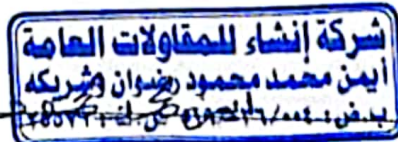 شركة إنشاء للمقاولات العامة
أيمن محمد محمود رضوان وشريكه
ب.ض: